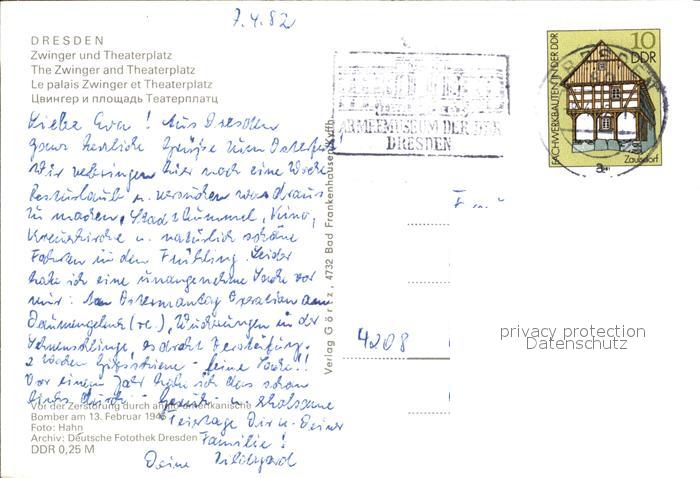 7.4.82
DRESDEN
Zwinger und Theaterplatz
The Zwinger and Theaterplatz
Le palais Zwinger et Theaterplatz
Цвингер и площадь Театерплатц
ARMEEMUSEUM DER DDR
DRESDEN
FACHWERKBAUTEN IN DER DDR
10
DDR
Zaulsdorf
Liebe Eva! Aus Dresden
ganz herzliche Grüße zum Osterfest!
Wir verbringen hier noch eine Woche
Resturlaub u. versuchen was draus
zu machen, Stadtbummel, Kino,
Kreuzkirche u. natürlich schöne
Fahrten in den Frühling. Leider
habe ich eine unangenehme Sache vor
mir: Am Ostermontag Operation am
Daumengelenk (re.), Wucherungen in der
Sehnenschlinge, es droht Versteifung.
2 Wochen Gipsschiene - feine Sache!!
Vor einem Jahr habe ich das schon
links durch - Gesunde u. erholsame
Feiertage Dir u. Deiner
Familie!
Deine Hildegard
Vor der Zerstörung durch anglo-amerikanische
Bomber am 13. Februar 1945
Foto: Hahn
Archiv: Deutsche Fotothek Dresden
DDR 0,25 M
Verlag Görtz, 4732 Bad Frankenhausen/Kyffh.
4208
privacy protection
Datenschutz